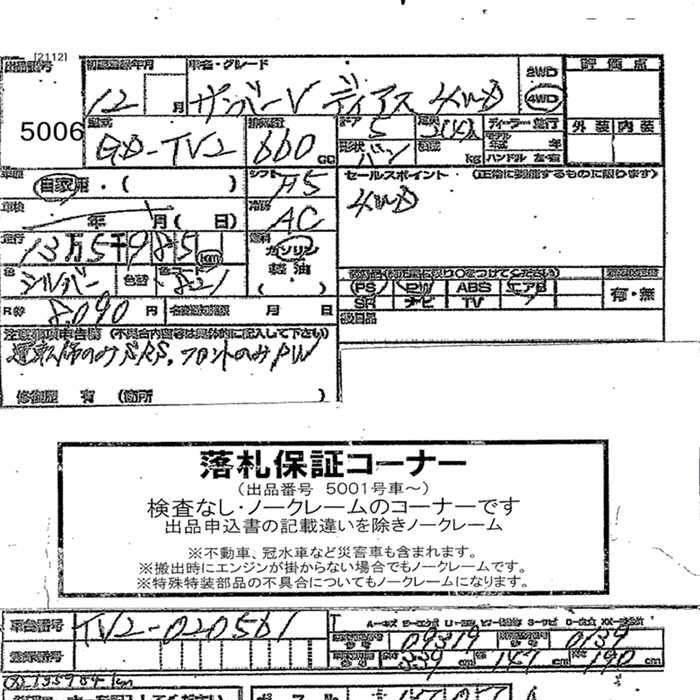 [2112]
出品番号 初度登録年月 車名・グレード 2WD 評価点
12 月 サンバーV ディアス 4WD 4WD
5006 型式 排気量 ドア 定員 ディーラー 並行 外装 内装
GD-TV2 660 cc 5 形状 バン 2(4) kg モデル 年式 年 ハンドル 左・右
車歴 自家用・( ) シフト A5 セールスポイント・(正常に装備するものに限ります)
車検 年 月( 日) 冷房 AC 4WD
走行 13万5千985 km 燃料 ガソリン
色 シルバー 色替 カラーコード 821 軽油
( ) PS PW ABS エアB
R券 8,090 円 名義変更期限 月 日 SR ナビ TV 有・無
注意事項申告欄 (不具合内容等は具体的に記入して下さい) 欠品目
運転席のみSRS, フロントのみPW
修復歴 有 (箇所 )
落札保証コーナー
(出品番号 5001号車~)
検査なし・ノークレームのコーナーです
出品申込書の記載違いを除きノークレーム
※不動車、冠水車など災害車も含まれます。
※搬出時にエンジンが掛からない場合でもノークレームです。
※特殊特装部品の不具合についてもノークレームになります。
車台番号 TV2-020561
09319 0139
登録番号 339 cm 147 cm 190 cm
135984 km